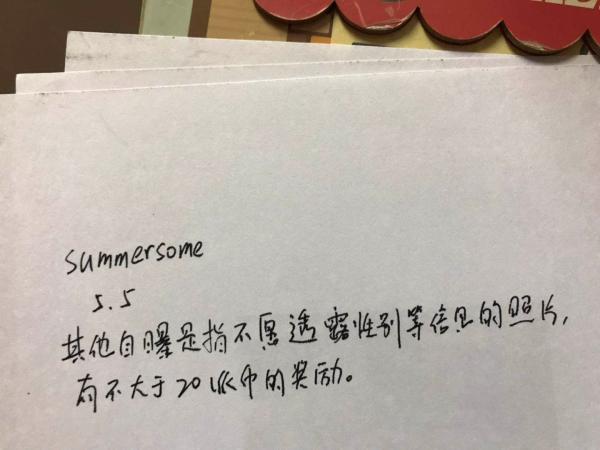 summersome
5.5
其他自曝是指不愿透露性别等信息的照片,
有不大于20派币的奖励。